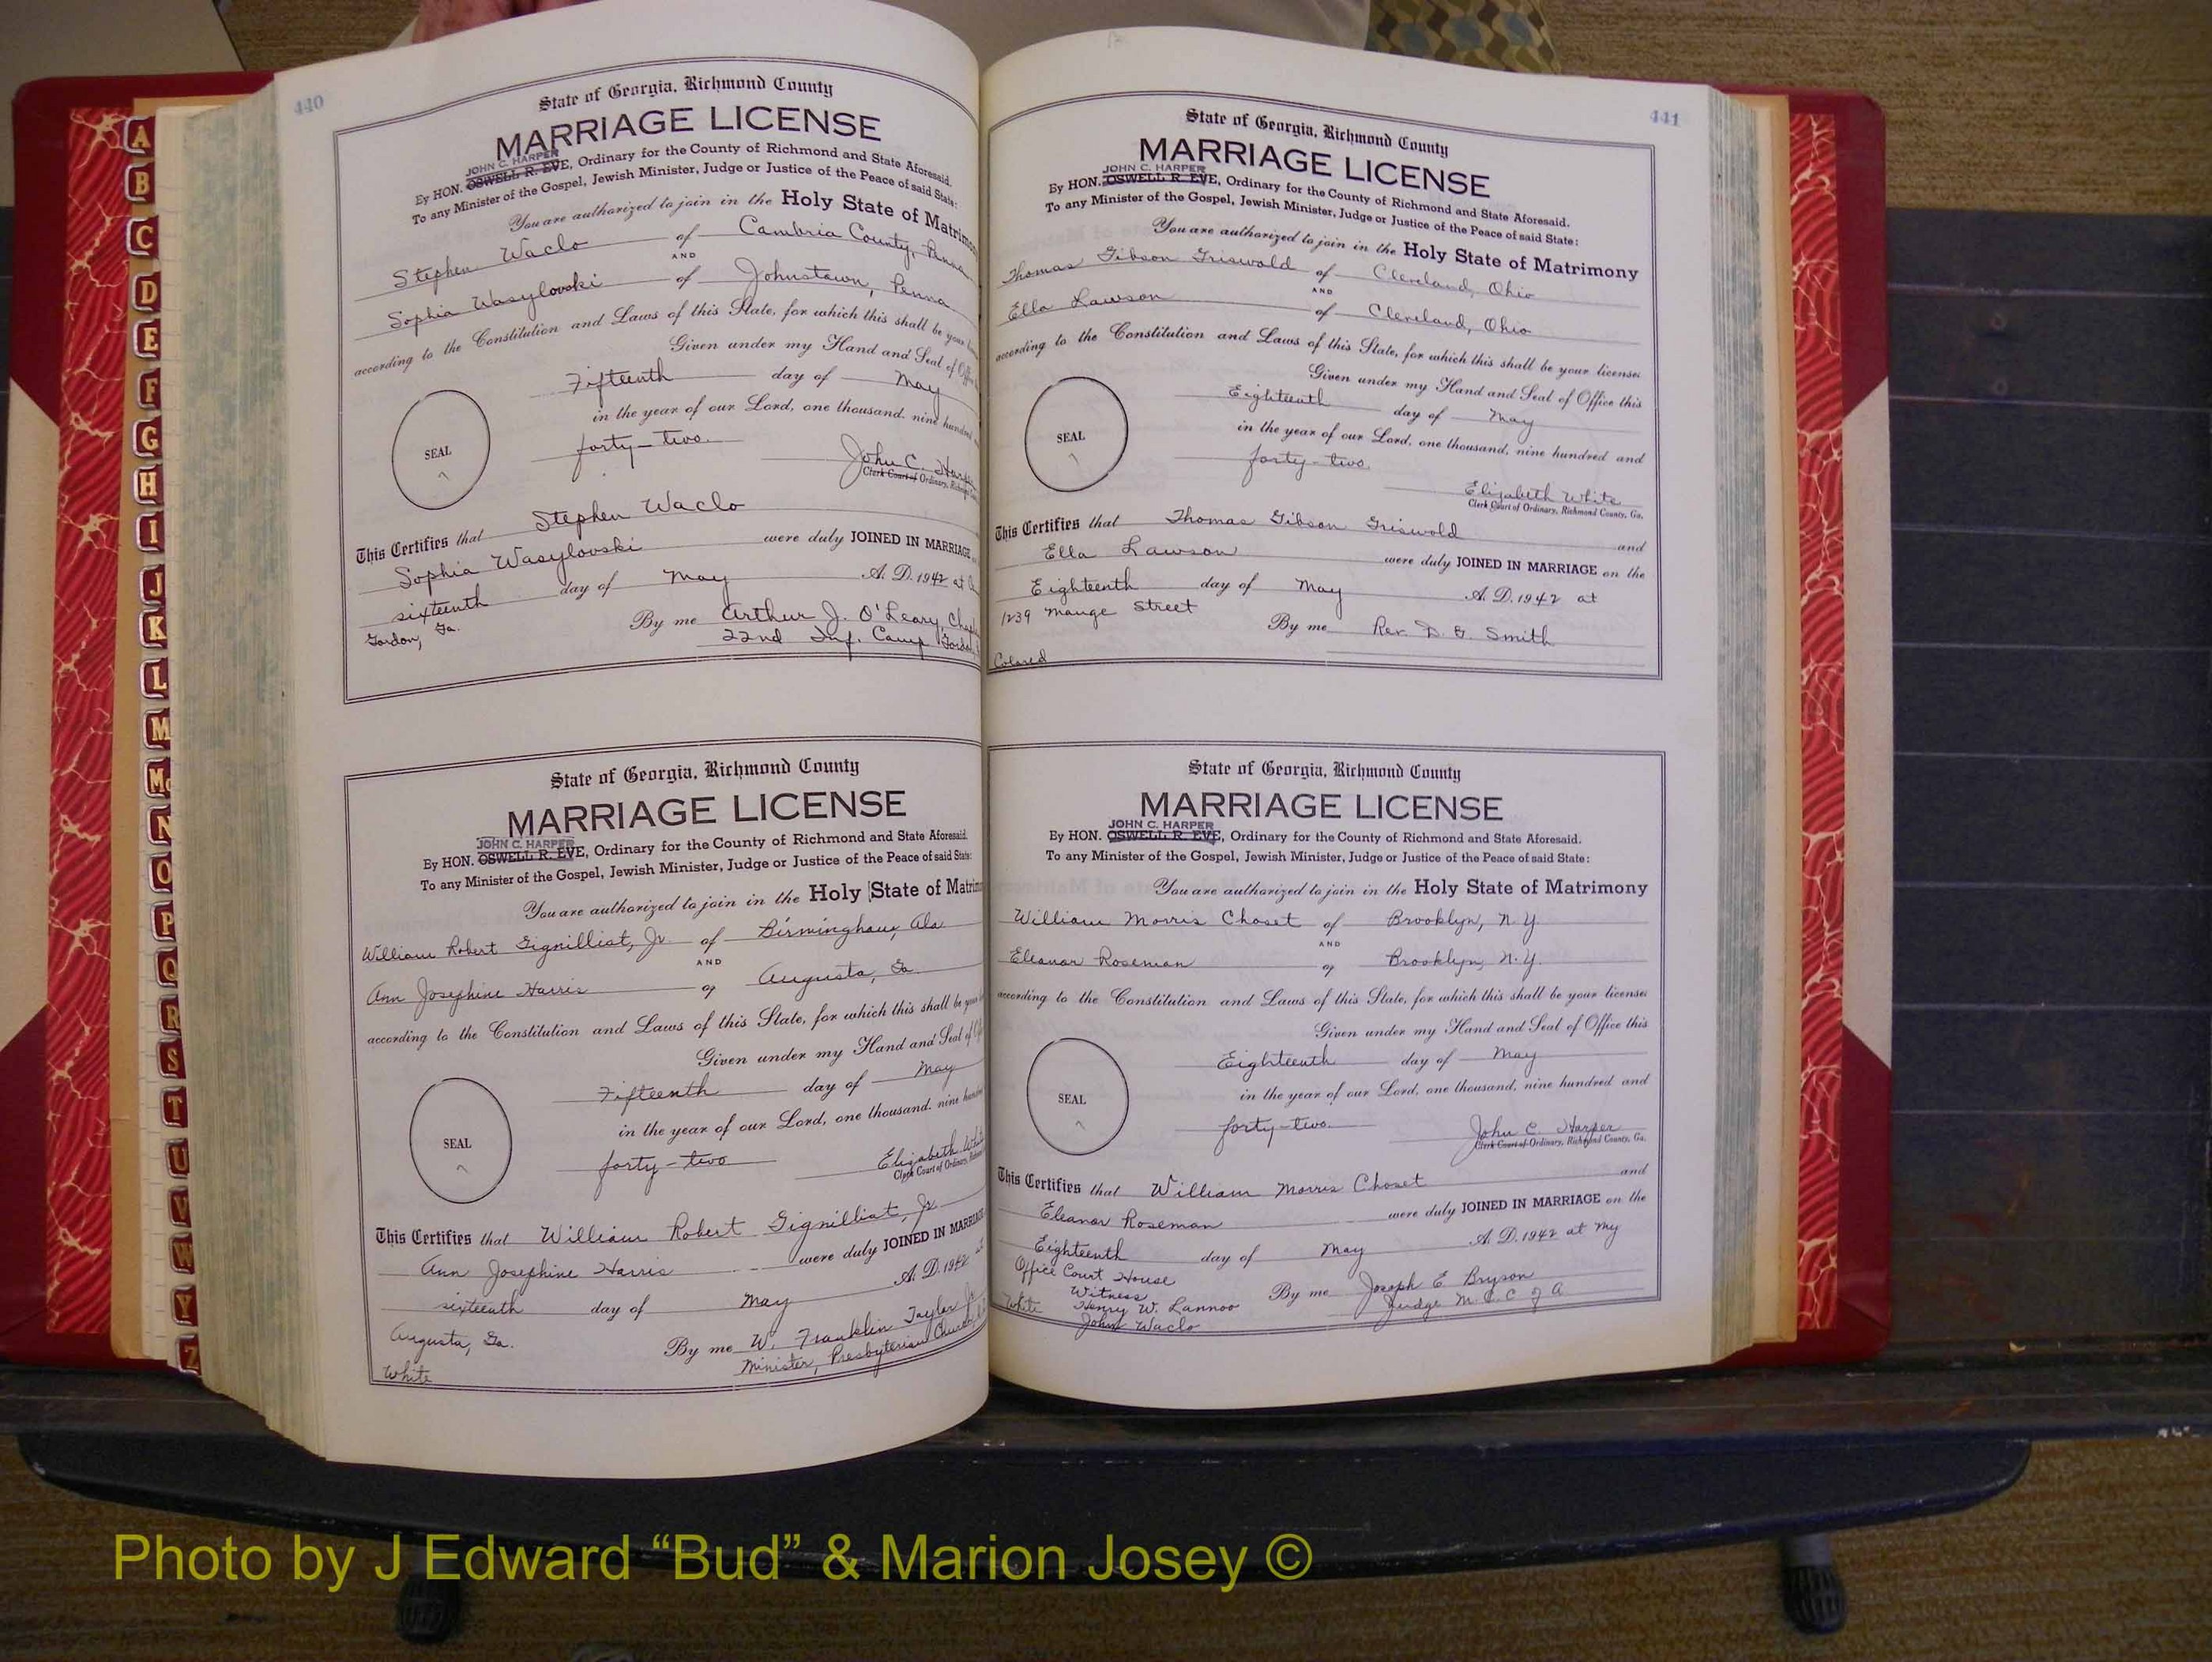 440
State of Georgia, Richmond County
MARRIAGE LICENSE
JOHN C. HARPER
By HON. OSWELL R. EVE, Ordinary for the County of Richmond and State Aforesaid.
To any Minister of the Gospel, Jewish Minister, Judge or Justice of the Peace of said State:
You are authorized to join in the Holy State of Matrimo
Stephen Waclo of Cambria County, Penna
AND
Sophia Wasylovski of Johnstown, Penna
according to the Constitution and Laws of this State, for which this shall be your
Given under my Hand and Seal of Offi
Fifteenth day of May
in the year of our Lord, one thousand. nine hundred
SEAL
forty-two.
John C. Harp
Clerk Court of Ordinary, Rich
This Certifies that Stephen Waclo
Sophia Wasylovski were duly JOINED IN MARRIAGE
sixteenth day of May A. D. 1942 at
Gordon, Ga. By me Arthur J. O'Leary, Chap
22nd Inf. Camp Gordo
State of Georgia, Richmond County
MARRIAGE LICENSE
JOHN C. HARPER
By HON. OSWELL R. EVE, Ordinary for the County of Richmond and State Aforesaid.
To any Minister of the Gospel, Jewish Minister, Judge or Justice of the Peace of said State:
You are authorized to join in the Holy State of Matrim
William Robert Gignilliat, Jr of Birmingham, Ala
AND
Ann Josephine Harris of Augusta, Ga
according to the Constitution and Laws of this State, for which this shall be your
Given under my Hand and Seal of
Fifteenth day of May
in the year of our Lord, one thousand. nine hund
SEAL
forty-two
Elizabeth Whi
Clerk Court of Ordinary,
This Certifies that William Robert Gignilliat, Jr
Ann Josephine Harris were duly JOINED IN MARRIAGE
sixteenth day of May A. D. 1942 at
Augusta, Ga. By me W. Franklin Taylor Jr
Minister, Presbyterian Church
White
441
State of Georgia, Richmond County
MARRIAGE LICENSE
JOHN C. HARPER
By HON. OSWELL R. EVE, Ordinary for the County of Richmond and State Aforesaid.
To any Minister of the Gospel, Jewish Minister, Judge or Justice of the Peace of said State:
You are authorized to join in the Holy State of Matrimony
Thomas Gibson Griswold of Cleveland, Ohio
AND
Ella Lawson of Cleveland, Ohio
according to the Constitution and Laws of this State, for which this shall be your license:
Given under my Hand and Seal of Office this
Eighteenth day of May
in the year of our Lord, one thousand, nine hundred and
SEAL
forty-two.
Elizabeth White
Clerk Court of Ordinary, Richmond County, Ga.
This Certifies that Thomas Gibson Griswold and
Ella Lawson were duly JOINED IN MARRIAGE on the
Eighteenth day of May A. D. 1942 at
1239 Mauge Street By me Rev. D. G. Smith
Colored
State of Georgia, Richmond County
MARRIAGE LICENSE
JOHN C. HARPER
By HON. OSWELL R. EVE, Ordinary for the County of Richmond and State Aforesaid.
To any Minister of the Gospel, Jewish Minister, Judge or Justice of the Peace of said State:
You are authorized to join in the Holy State of Matrimony
William Morris Choset of Brooklyn, N.Y.
AND
Eleanor Roseman of Brooklyn, N.Y.
according to the Constitution and Laws of this State, for which this shall be your license:
Given under my Hand and Seal of Office this
Eighteenth day of May
in the year of our Lord, one thousand, nine hundred and
SEAL
forty-two.
John C. Harper
Clerk Court of Ordinary, Richmond County, Ga.
This Certifies that William Morris Choset and
Eleanor Roseman were duly JOINED IN MARRIAGE on the
Eighteenth day of May A. D. 1942 at my
Office Court House By me Joseph E Bryson
Witness Judge M. C. C of A
White Henry W. Lannoo
John Waclo
A
B
C
D
E
F
G
H
I
J
K
L
M
Mc
N
O
P
Q
R
S
T
U
V
W
Y
Z
Photo by J Edward “Bud” & Marion Josey ©